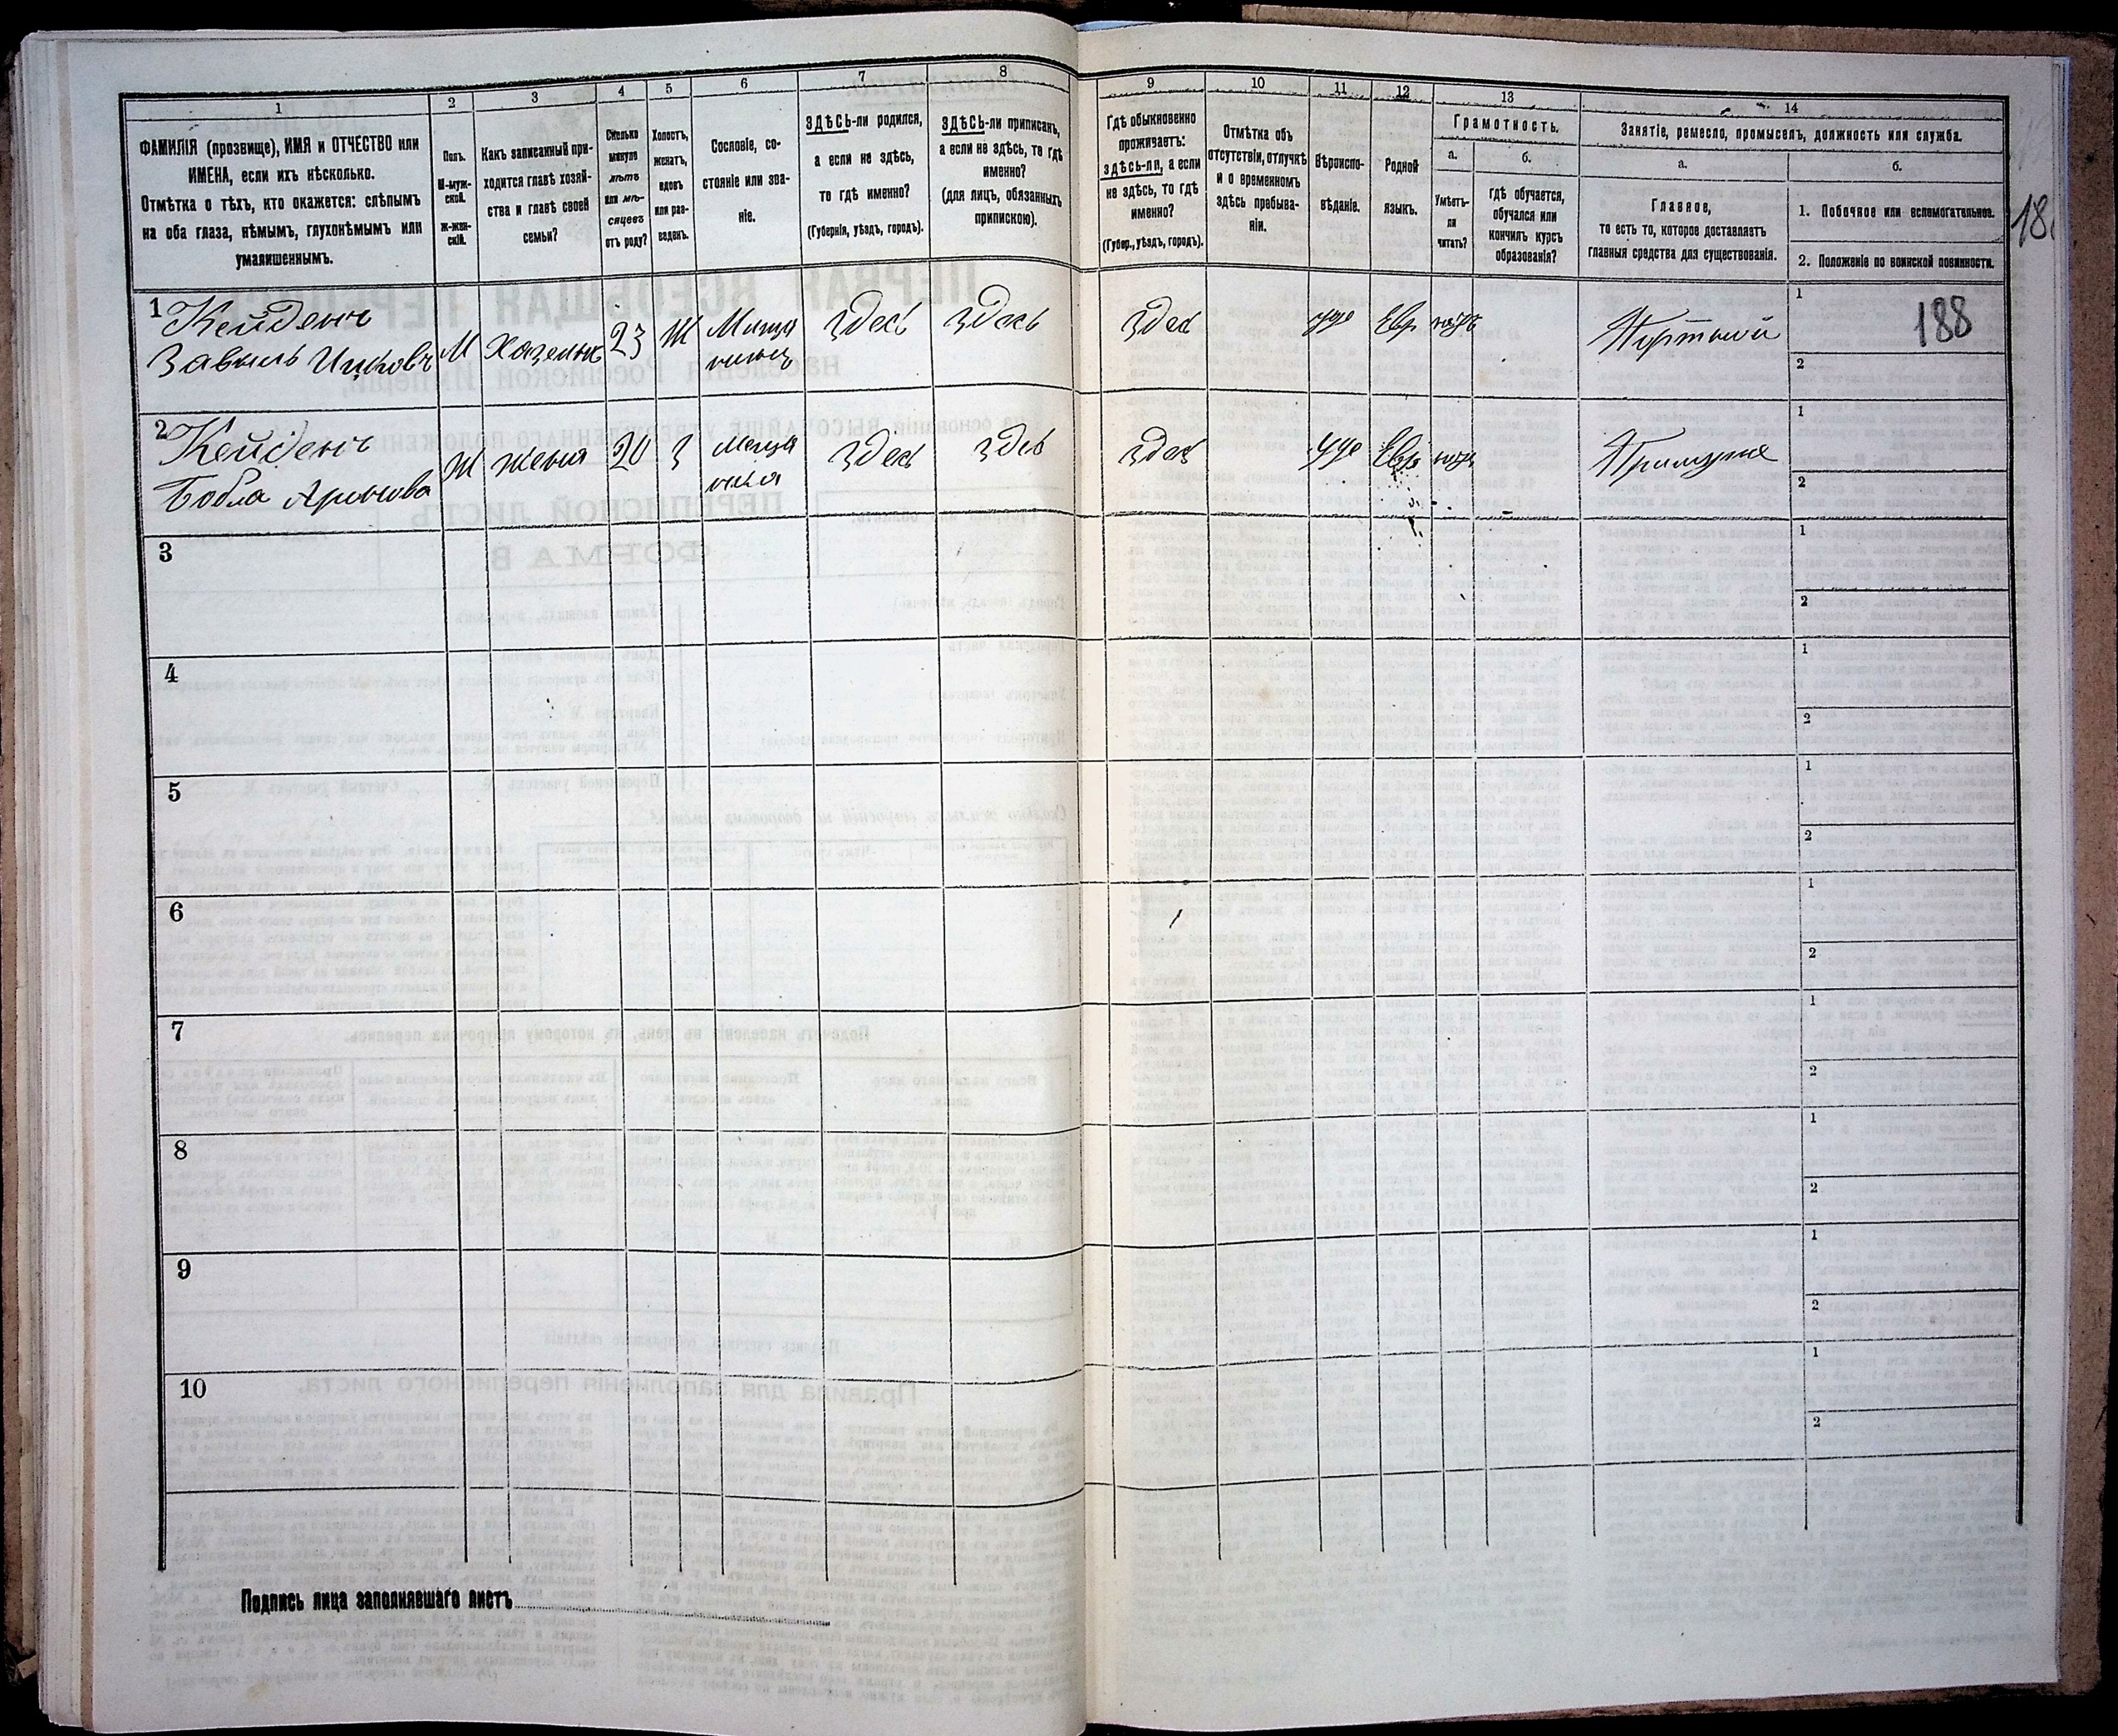 1
2
3
4
5
6
7
8
9
10
11
12
13
14
ФАМИЛІЯ (прозвище), ИМЯ и ОТЧЕСТВО или
ИМЕНА, если ихъ нѣсколько.
Отмѣтка о тѣхъ, кто окажется: слѣпымъ
на оба глаза, нѣмымъ, глухонѣмымъ или
умалишеннымъ.
Полъ.
М-муж-
ской.
Ж-жен-
скій.
Какъ записанный при-
ходится главѣ хозяй-
ства и главѣ своей
семьи?
Сколько
минуло
лѣтъ
или мѣ-
сяцевъ
отъ роду?
Холостъ,
женатъ,
вдовъ
или раз-
веденъ.
Сословіе, со-
стояніе или зва-
ніе.
ЗДѢСЬ-ли родился,
а если не здѣсь,
то гдѣ именно?
(Губернія, уѣздъ, городъ).
ЗДѢСЬ-ли приписанъ,
а если не здѣсь, то гдѣ
именно?
(для лицъ, обязанныхъ
припискою).
Гдѣ обыкновенно
проживаетъ:
здѣсь-ли, а если
не здѣсь, то гдѣ
именно?
(Губер., уѣздъ, городъ).
Отмѣтка объ
отсутствіи, отлучкѣ
и о временномъ
здѣсь пребыва-
ніи.
Вѣроиспо-
вѣданіе.
Родной
языкъ.
Грамотность.
а.
б.
Умѣетъ-
ли
читать?
Гдѣ обучается,
обучался или
кончилъ курсъ
образованія?
Занятіе, ремесло, промыселъ, должность или служба.
а.
б.
Главное,
то есть то, которое доставляетъ
главныя средства для существованія.
1. Побочное или вспомогательное.
2. Положеніе по воинской повинности.
188
1
Кейденъ
М
23
Ж
Мѣща
нинъ
Здесь
Здесь
Здес
иуде
Евр
Портной
1
2
2
Кейденъ
Ж
жена
20
З
Здесь
Здес
Здес
иуде
Евр
При муже
1
2
3
1
2
4
1
2
5
1
2
6
1
2
7
1
2
8
1
2
9
1
2
10
1
2
Подпись лица заполнявшаго листъ